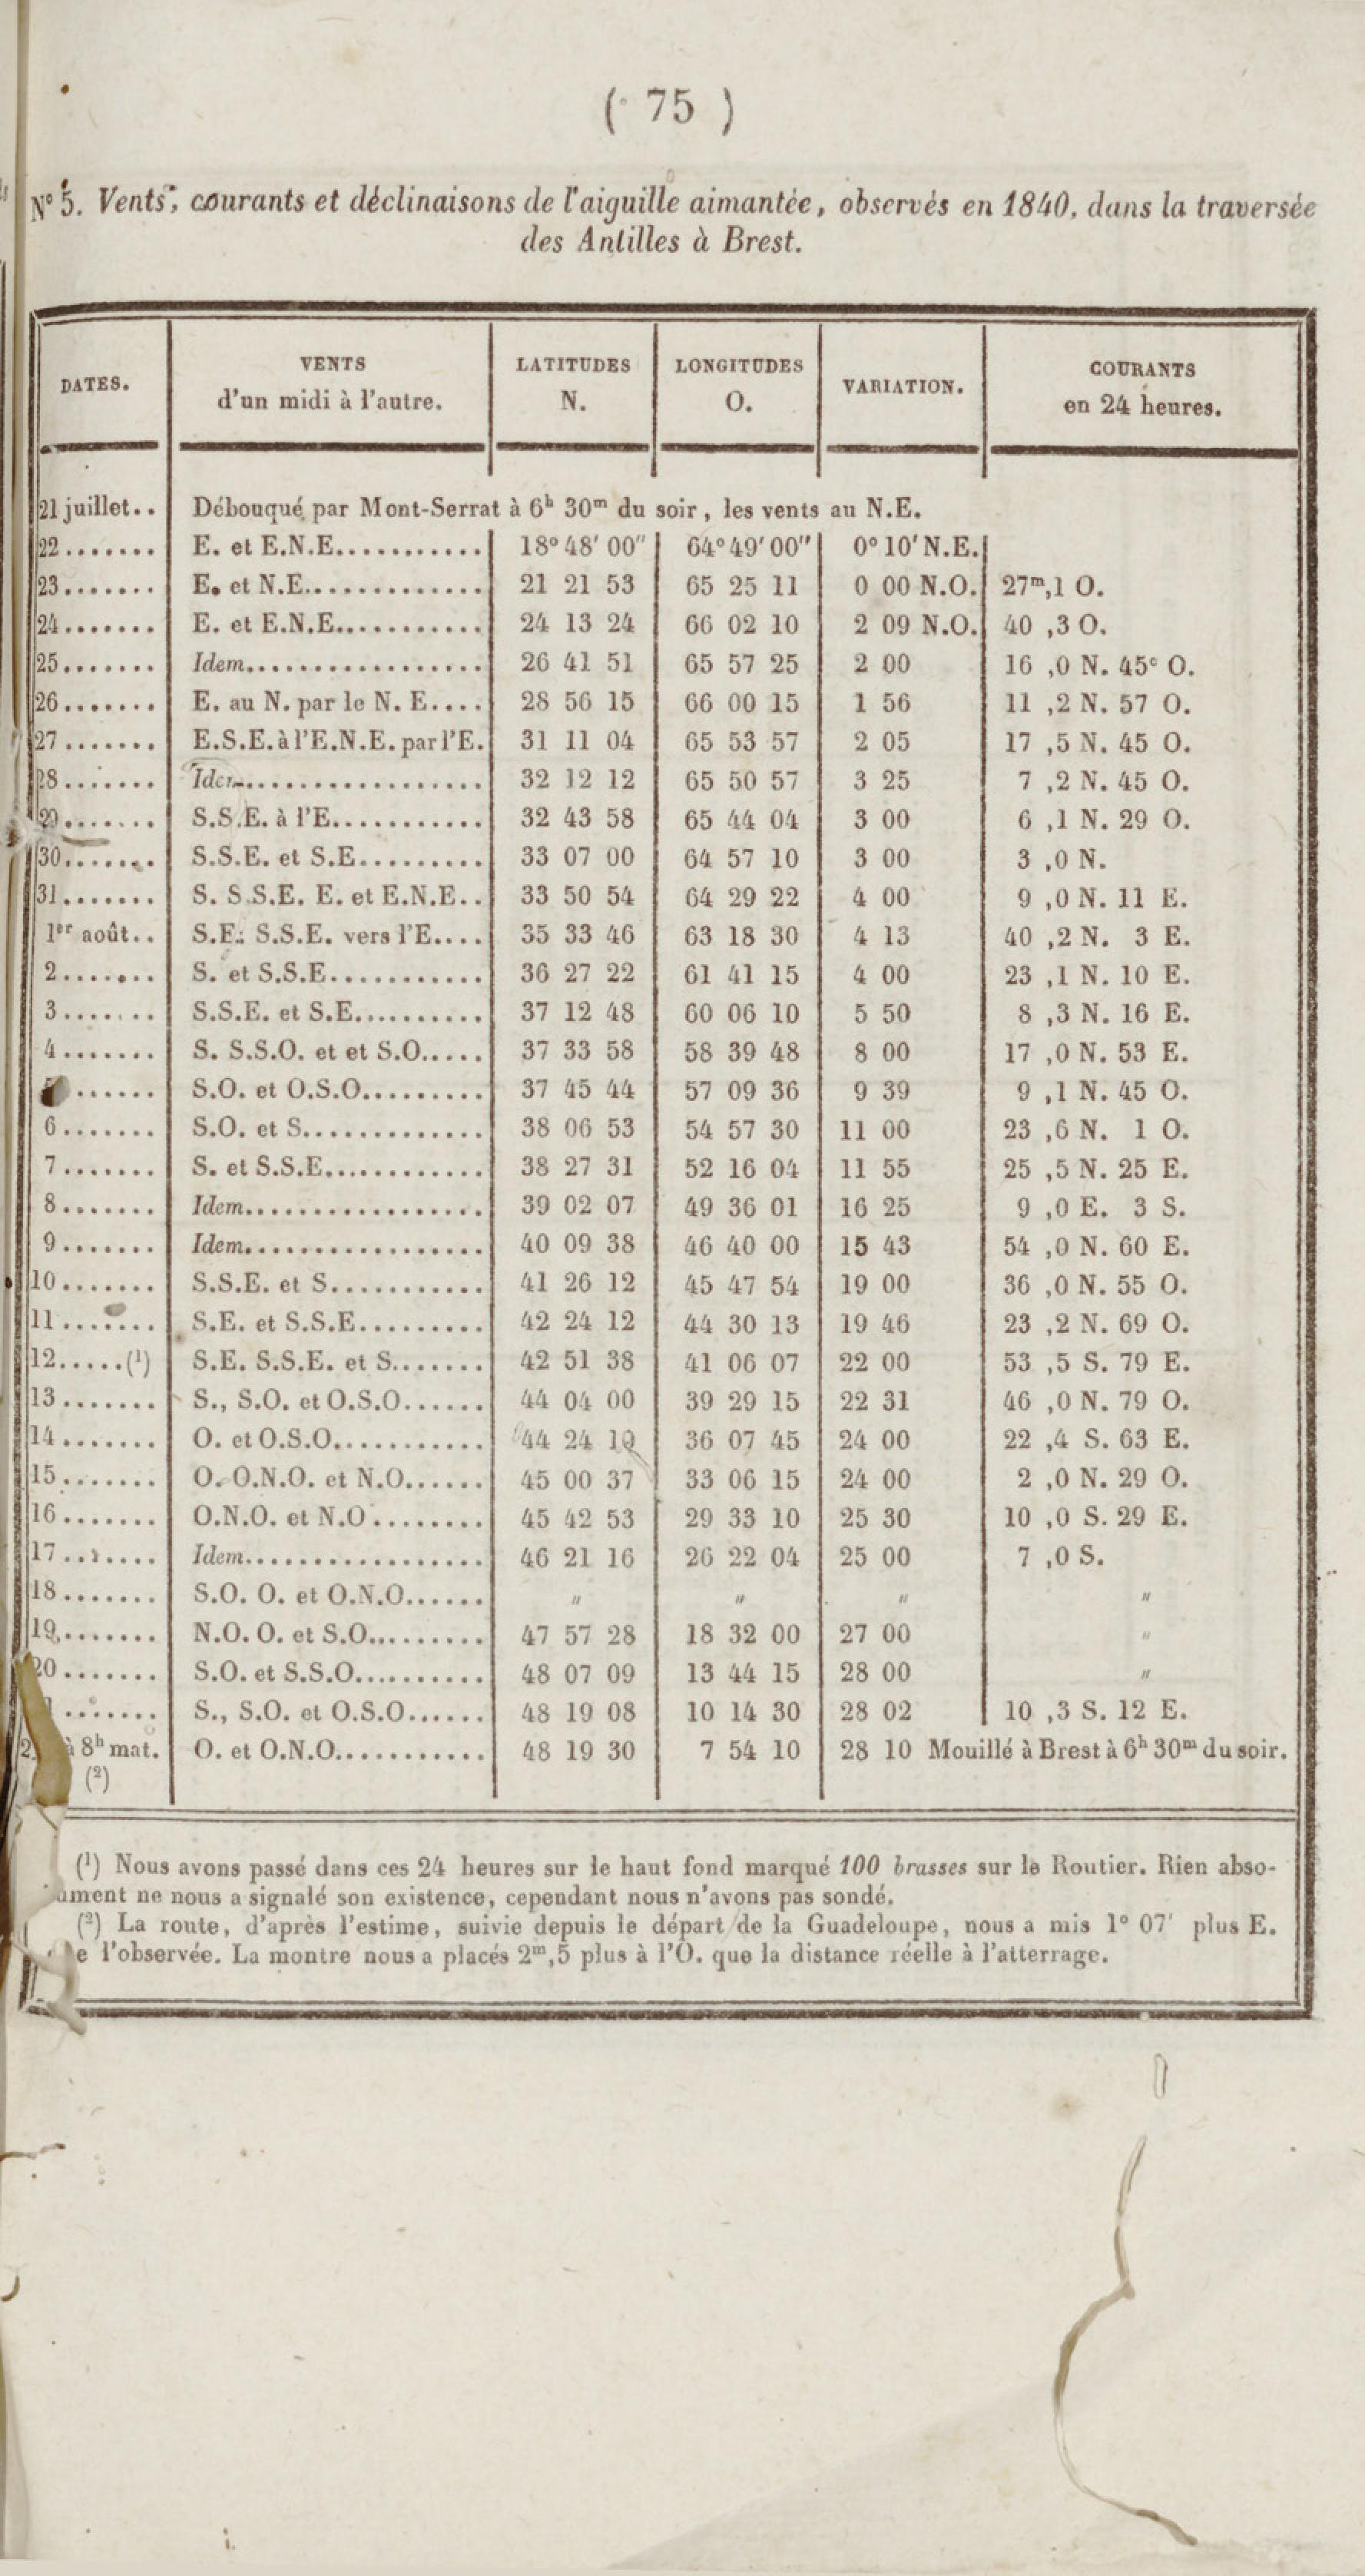 ( 75 )
N° 5. Vents, courants et déclinaisons de l'aiguille aimantée, observés en 1840, dans la traversée
des Antilles à Brest.
DATES. VENTS d'un midi à l'autre. LATITUDES N. LONGITUDES O. VARIATION. COURANTS en 24 heures.
21 juillet.. Débouqué par Mont-Serrat à 6h 30m du soir, les vents au N.E.
22....... E. et E.N.E............ 18° 48' 00" 64° 49' 00" 0° 10' N.E.
23....... E. et N.E............. 21 21 53 65 25 11 0 00 N.O. 27m,1 O.
24....... E. et E.N.E........... 24 13 24 66 02 10 2 09 N.O. 40 ,3 O.
25....... Idem................. 26 41 51 65 57 25 2 00 16 ,0 N. 45e O.
26....... E. au N. par le N. E.... 28 56 15 66 00 15 1 56 11 ,2 N. 57 O.
27....... E.S.E. à l'E.N.E. par l'E. 31 11 04 65 53 57 2 05 17 ,5 N. 45 O.
28....... Idem................. 32 12 12 65 50 57 3 25 7 ,2 N. 45 O.
29....... S.S.E. à l'E........... 32 43 58 65 44 04 3 00 6 ,1 N. 29 O.
30....... S.S.E. et S.E......... 33 07 00 64 57 10 3 00 3 ,0 N.
31....... S. S.S.E. E. et E.N.E.. 33 50 54 64 29 22 4 00 9 ,0 N. 11 E.
1er août.. S.E. S.S.E. vers l'E.... 35 33 46 63 18 30 4 13 40 ,2 N. 3 E.
2....... S. et S.S.E........... 36 27 22 61 41 15 4 00 23 ,1 N. 10 E.
3....... S.S.E. et S.E.......... 37 12 48 60 06 10 5 50 8 ,3 N. 16 E.
4....... S. S.S.O. et et S.O..... 37 33 58 58 39 48 8 00 17 ,0 N. 53 E.
...... S.O. et O.S.O......... 37 45 44 57 09 36 9 39 9 ,1 N. 45 O.
6....... S.O. et S............. 38 06 53 54 57 30 11 00 23 ,6 N. 1 O.
7....... S. et S.S.E............ 38 27 31 52 16 04 11 55 25 ,5 N. 25 E.
8....... Idem................. 39 02 07 49 36 01 16 25 9 ,0 E. 3 S.
9....... Idem................. 40 09 38 46 40 00 15 43 54 ,0 N. 60 E.
10....... S.S.E. et S........... 41 26 12 45 47 54 19 00 36 ,0 N. 55 O.
11....... S.E. et S.S.E......... 42 24 12 44 30 13 19 46 23 ,2 N. 69 O.
12.....(1) S.E. S.S.E. et S....... 42 51 38 41 06 07 22 00 53 ,5 S. 79 E.
13....... S., S.O. et O.S.O...... 44 04 00 39 29 15 22 31 46 ,0 N. 79 O.
14....... O. et O.S.O........... 44 24 19 36 07 45 24 00 22 ,4 S. 63 E.
15....... O. O.N.O. et N.O...... 45 00 37 33 06 15 24 00 2 ,0 N. 29 O.
16....... O.N.O. et N.O........ 45 42 53 29 33 10 25 30 10 ,0 S. 29 E.
17....... Idem................. 46 21 16 26 22 04 25 00 7 ,0 S.
18....... S.O. O. et O.N.O...... " " " "
19....... N.O. O. et S.O......... 47 57 28 18 32 00 27 00 "
20....... S.O. et S.S.O.......... 48 07 09 13 44 15 28 00 "
....... S., S.O. et O.S.O...... 48 19 08 10 14 30 28 02 10 ,3 S. 12 E.
à 8h mat. O. et O.N.O........... 48 19 30 7 54 10 28 10 Mouillé à Brest à 6h 30m du soir.
(2)
(1) Nous avons passé dans ces 24 heures sur le haut fond marqué 100 brasses sur le Routier. Rien abso-
ument ne nous a signalé son existence, cependant nous n'avons pas sondé.
(2) La route, d'après l'estime, suivie depuis le départ de la Guadeloupe, nous a mis 1° 07' plus E.
e l'observée. La montre nous a placés 2m,5 plus à l'O. que la distance réelle à l'atterrage.